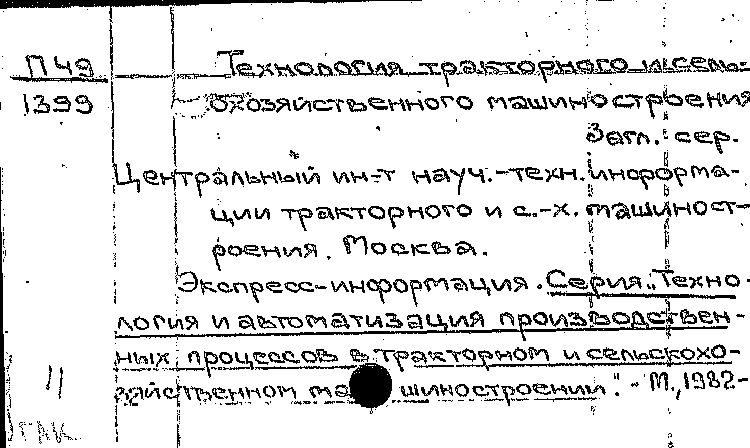 П 49 Технология тракторного и сель-
1399 охозяйственного машиностроения
Загл. сер.
Центральный ин-т науч.-техн. информа-
ции тракторного и с.-х. машиност-
роения. Москва.
Экспресс-информация. Серия „Техно-
логия и автоматизация производствен-
ных процессов в тракторном и сельскохо-
зяйственном машиностроении". - М., 1982-
11